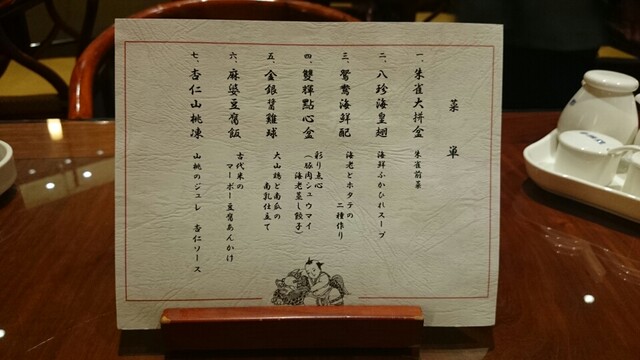 菜單
一、朱雀大拼盆 朱雀前菜
二、八珍海皇翅 海鮮ふかひれスープ
三、鴛鴦海鮮配 海老とホタテの
二種作り
四、雙輝點心盒 彩り点心
（豚肉シュウマイ
海老蒸し餃子）
五、金銀醤雞球 大山鶏と南瓜の
南乳仕立て
六、麻婆豆腐飯 古代米の
マーボー豆腐あんかけ
七、杏仁山桃凍 山桃のジュレ 杏仁ソース